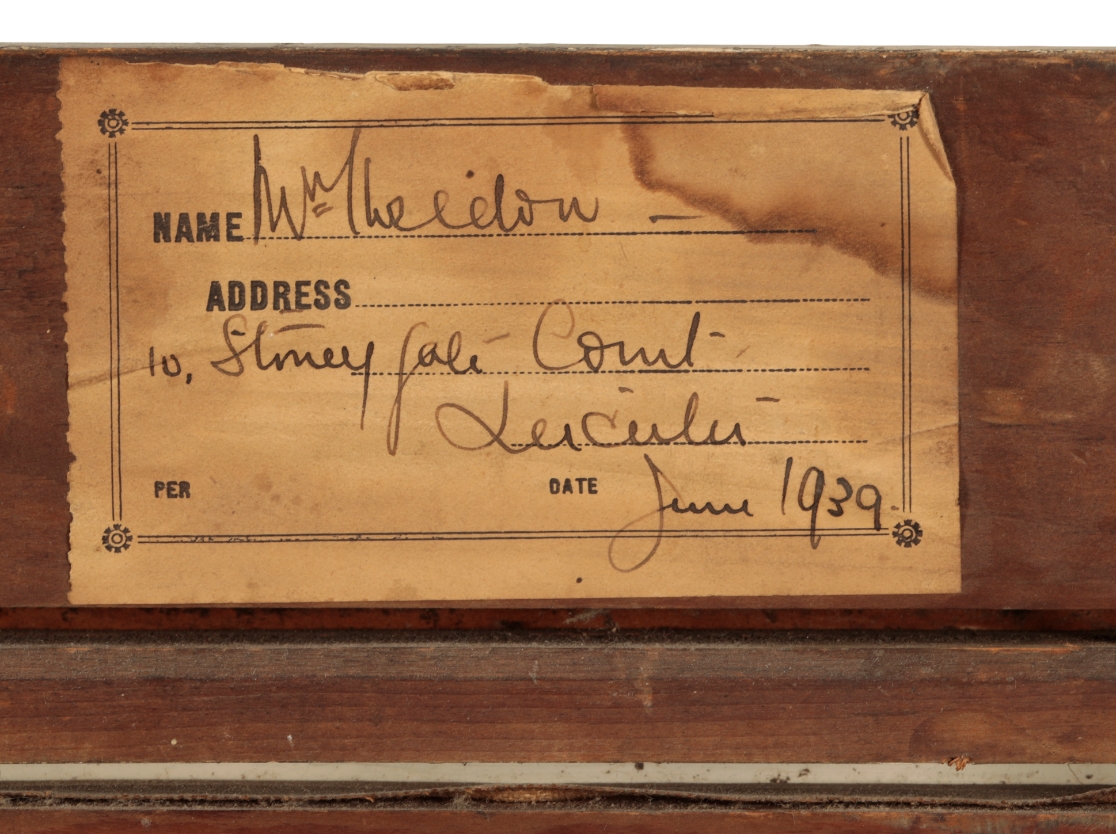 NAME
ADDRESS
10, Stoneygate Court
Leicester
PER DATE June 1939.